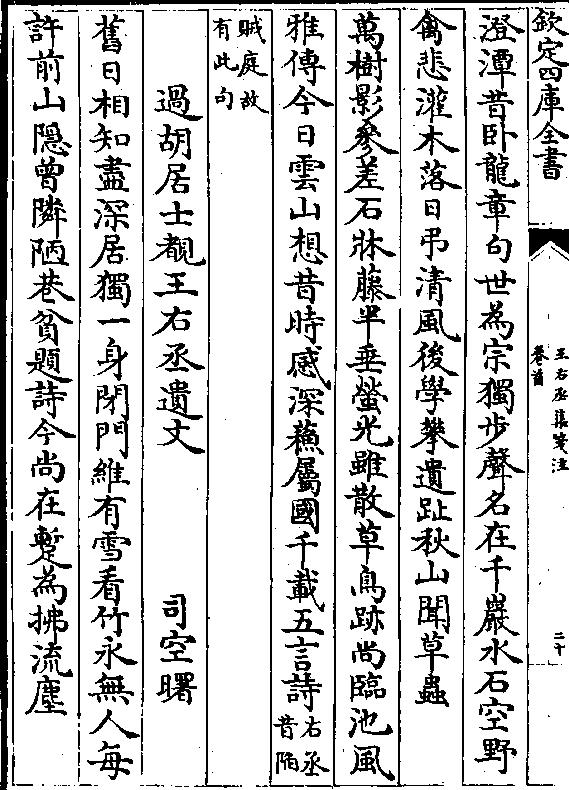 欽定四庫全書
王右丞集箋注
卷首
二十
澄潭昔卧龍章句世為宗獨步聲名在千巖水石空野
禽悲灌木落日弔清風後學攀遺趾秋山聞草蟲
萬樹影參差石牀藤半垂螢光雖散草鳥跡尚臨池風
雅傳今日雲山想昔時感深蘓屬國千載五言詩右丞昔陷
賊庭故有此句
過胡居士覩王右丞遺文 司空曙
舊日相知盡深居獨一身閉門維有雪看竹永無人每
許前山隱曾隣陋巷貧題詩今尚在暫為拂流塵